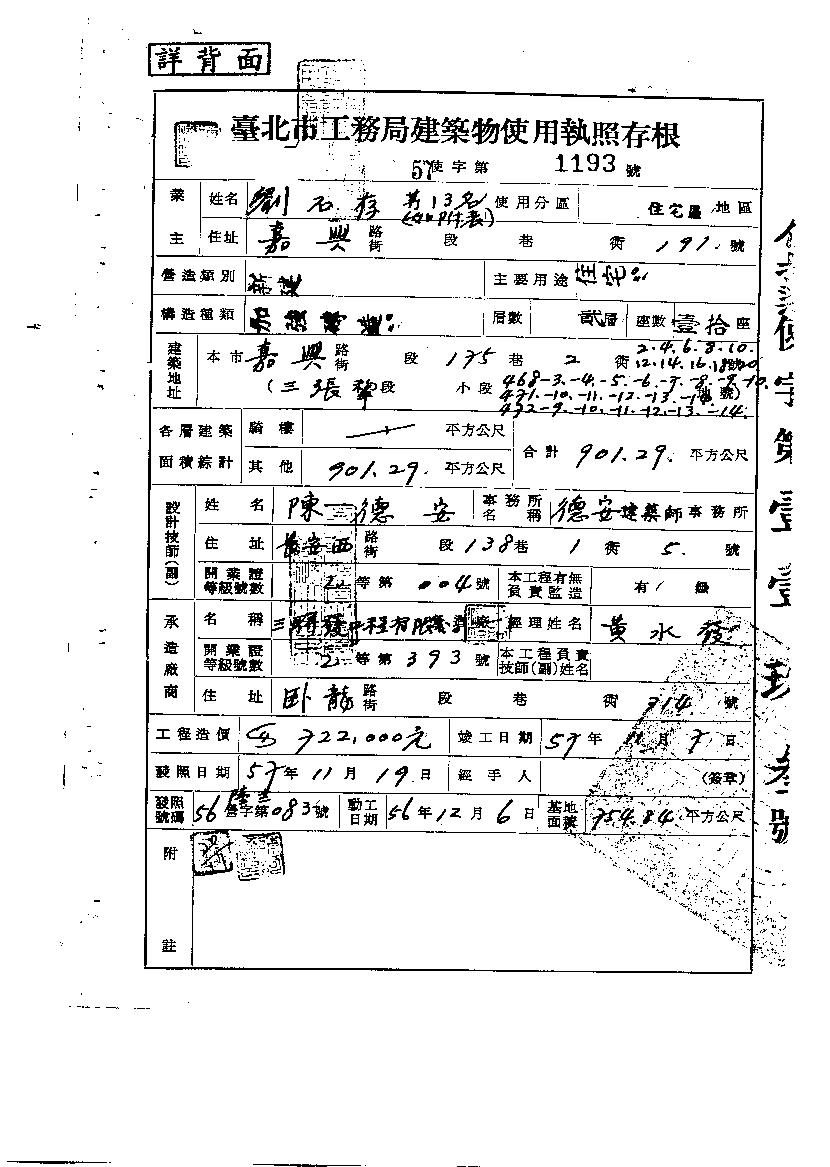 詳背面
臺北市工務局建築物使用執照存根
57使字第 1193 號
業主 姓名 劉石存 等13名 使用分區 住宅區 地區
(如附表)
住址 嘉興 路街 段 巷 衖 191. 號
營造類別 新建 主要用途 住宅
構造種類 加強磚造 層數 貳層 座數 壹拾座
建築地址 本市 嘉興 路街 段 175 巷 2 衖 2.4.6.8.10.
12.14.16.18.20 號
(三張犂段 小段 468-3.-4.-5.-6.-7.-8.-9.-10.
471.-10.-11.-12.-13.-14. 地號)
472-9.-10.-11.-12.-13.-14.
各層建築面積綜計 騎樓 平方公尺 合計 901.29. 平方公尺
其他 901.29. 平方公尺
設計技師(副) 姓名 陳德安 事務所名稱 德安建築師事務所
住址 長安西 路街 段 138巷 1 衖 5. 號
開業證等級號數 2. 等第 004號 本工程有無負責監造 有 級
承造廠商 名稱 經理姓名 黃水發
開業證等級號數 2. 等第 393 號 本工程負責技師(副)姓名
住址 臥龍 路街 段 巷 衖 714. 號
工程造價 722,000元 竣工日期 57年 11月 7日
發照日期 57年11月19日 經手人 (簽章)
發照號碼 56 營字第083號 動工日期 56年12月6日 基地面積 754.84 平方公尺
附註
使字第壹壹玖叁號